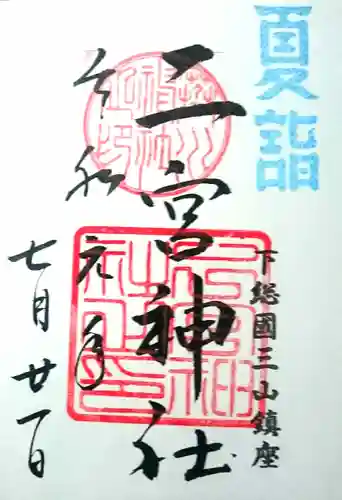 夏詣
下総國三山鎮座
二宮神社
令和元年
七月廿一日